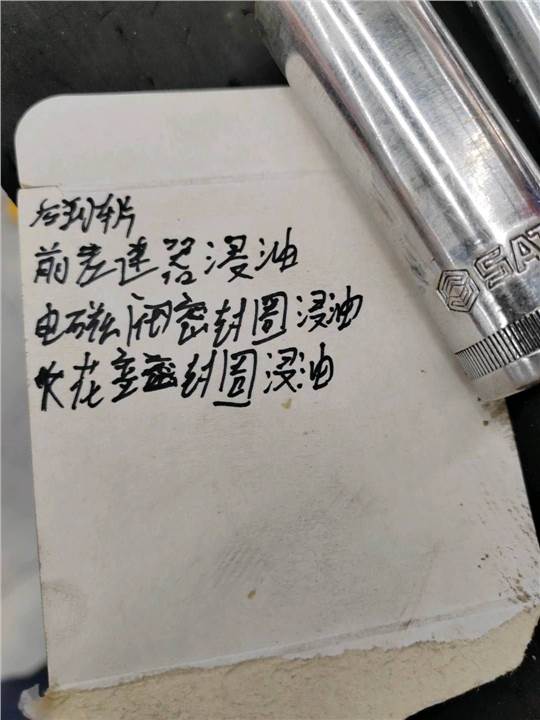 后刹车片
前差速器浸油
电磁阀密封圈浸油
火花塞密封圈浸油
SAT